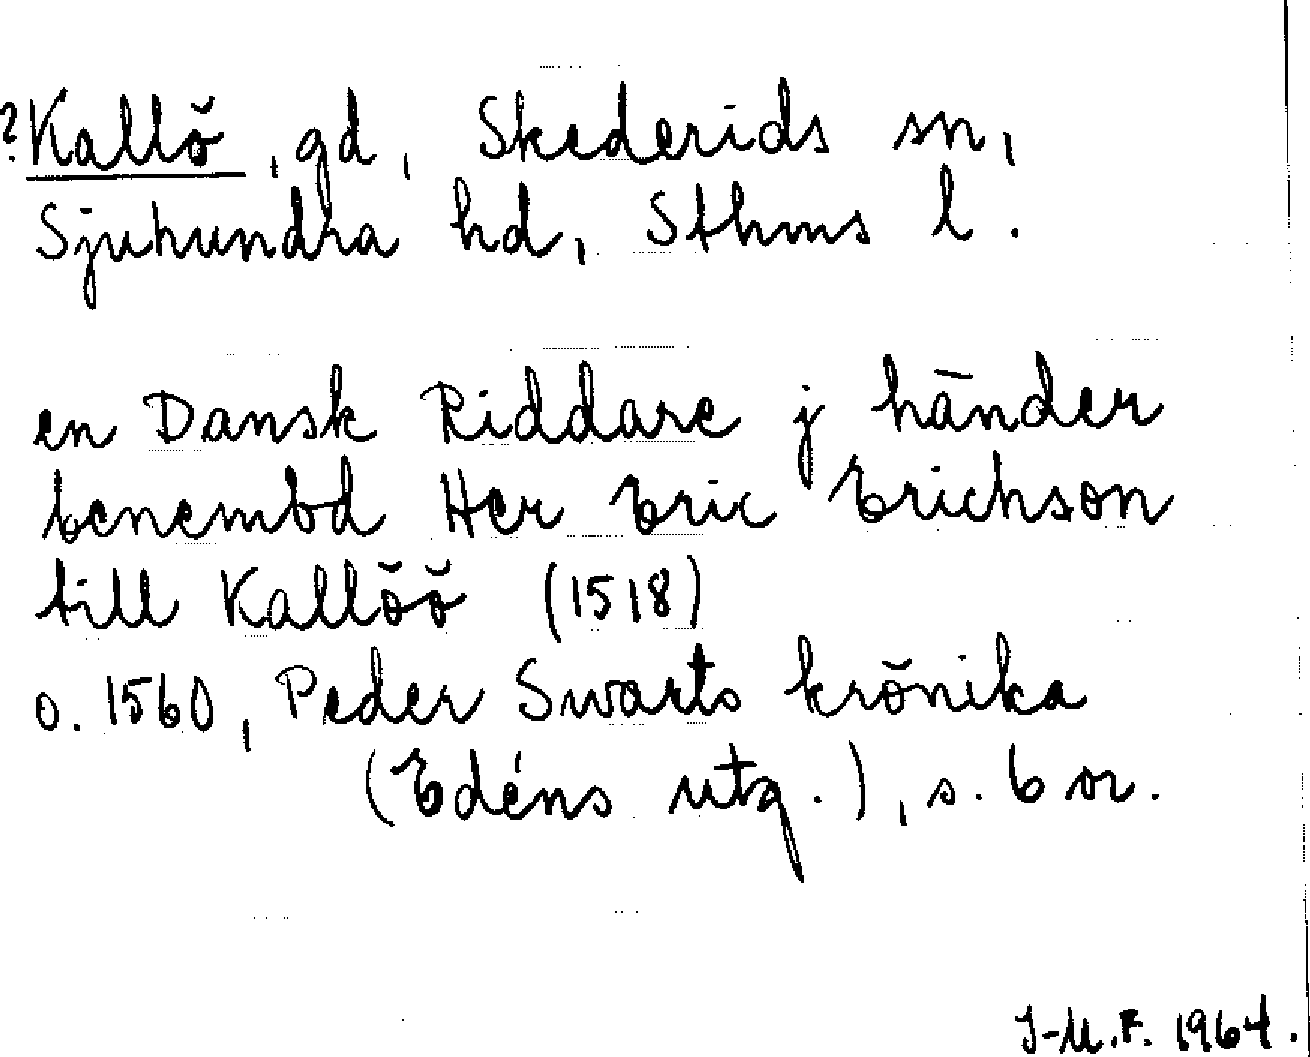 ?Kallö, gd, Skederids sn,
Sjuhundra hd, Sthms l.
en Dansk Riddare j händer
benembd Her Eric Erichson
till Kallöö (1518)
o. 1560, Peder Swarts krönika
(Edéns utg.), s. 6 or.
J-M.F. 1964.